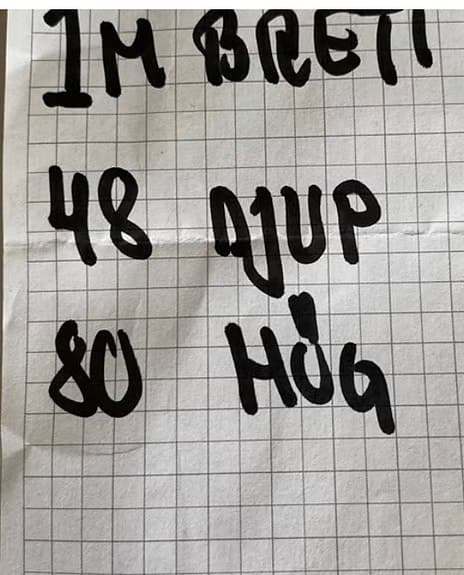 1M BRETT
48 DJUP
80 HÖG